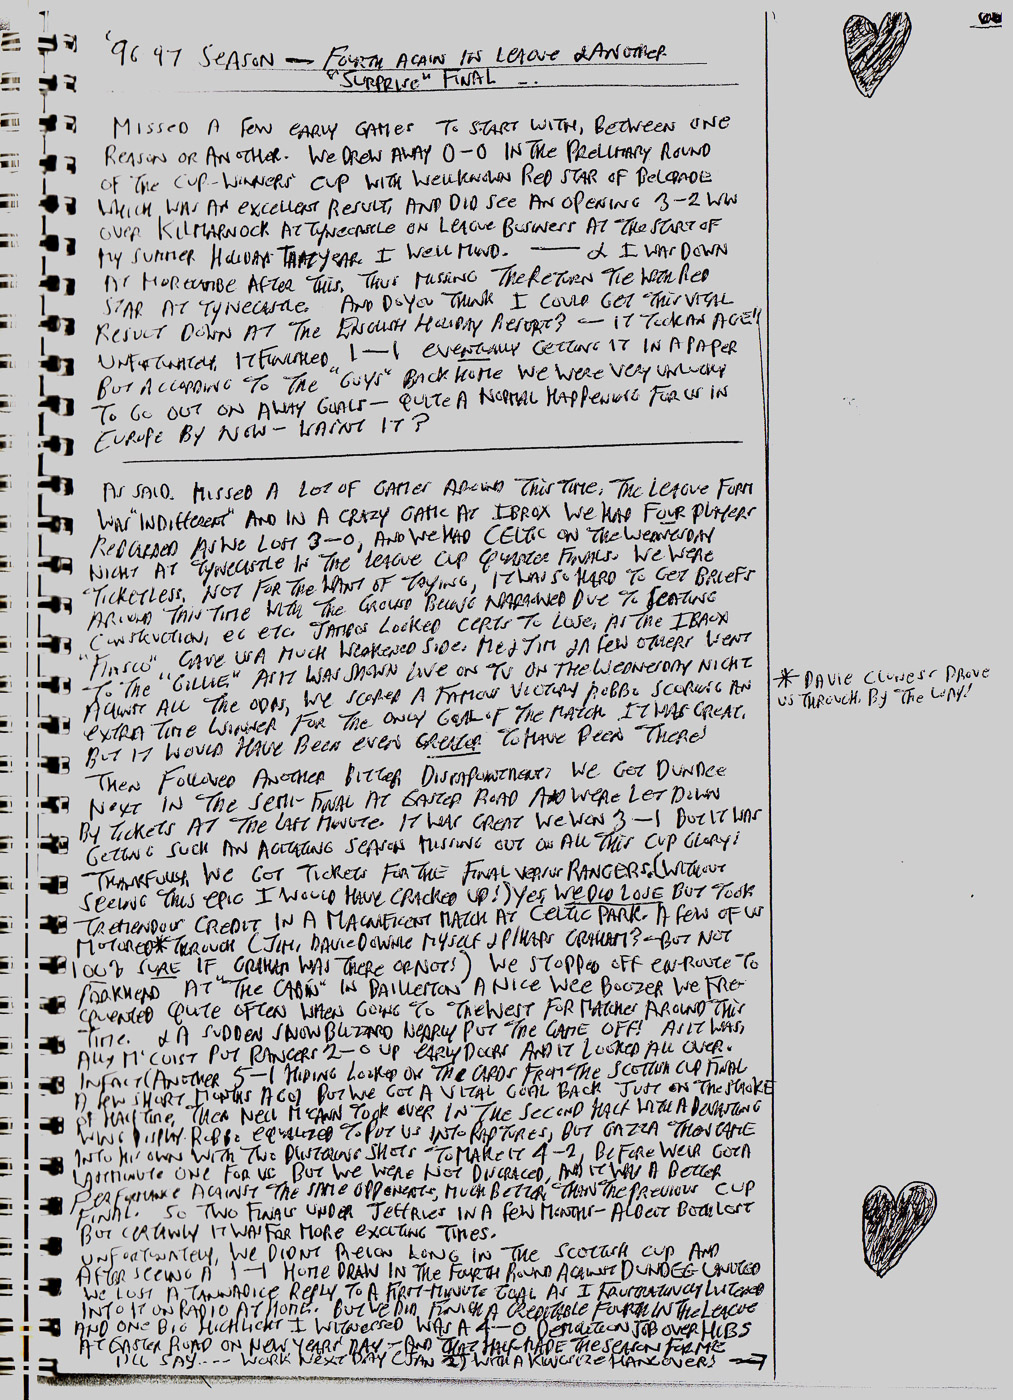 '96 97 SEASON — FOURTH AGAIN IN LEAGUE & ANOTHER
"SURPRISE" FINAL — .
MISSED A FEW EARLY GAMES TO START WITH, BETWEEN ONE
REASON OR ANOTHER. WE DREW AWAY 0-0 IN THE PRELIMARY ROUND
OF THE CUP-WINNERS' CUP WITH WELLKNOWN RED STAR OF BELGRADE
WHICH WAS AN EXCELLENT RESULT, AND DID SEE AN OPENING 3-2 WIN
OVER KILMARNOCK AT TYNECASTLE ON LEAGUE BUSINESS AT THE START OF
MY SUMMER HOLIDAY THAT YEAR I WELL MIND. —— & I WAS DOWN
AT MORECAMBE AFTER THIS, THUS MISSING THE RETURN TIE WITH RED
STAR AT TYNECASTLE. AND DO YOU THINK I COULD GET THIS VITAL
RESULT DOWN AT THE ENGLISH HOLIDAY RESORT? — IT TOOK AN AGE!!
UNFORTUNATELY, IT FINISHED 1—1 EVENTUALLY GETTING IT IN A PAPER
BUT ACCORDING TO THE "GUYS" BACK HOME WE WERE VERY UNLUCKY
TO GO OUT ON AWAY GOALS — QUITE A NORMAL HAPPENING FOR US IN
EUROPE BY NOW — WASN'T IT?
AS SAID. MISSED A LOT OF GAMES AROUND THIS TIME. THE LEAGUE FORM
WAS "INDIFFERENT" AND IN A CRAZY GAME AT IBROX WE HAD FOUR PLAYERS
REDCARDED AS WE LOST 3-0, AND WE HAD CELTIC ON THE WEDNESDAY
NIGHT AT TYNECASTLE IN THE LEAGUE CUP QUARTER FINALS. WE WERE
TICKETLESS, NOT FOR THE WANT OF TRYING, IT WAS SO HARD TO GET BRIEFS
AROUND THIS TIME WITH THE GROUND BEING NARROWED DUE TO SEATING
CONSTRUCTION, EC ETC. JAMBOS LOOKED CERTS TO LOSE, AS THE IBROX
"FIASCO" GAVE US A MUCH WEAKENED SIDE. ME & JIM & A FEW OTHERS WENT
TO THE "GILLIE" AS IT WAS SHOWN LIVE ON TV ON THE WEDNESDAY NIGHT
AGAINST ALL THE ODDS, WE SCORED A FAMOUS VICTORY ROBBO SCORING AN
EXTRA TIME WINNER FOR THE ONLY GOAL OF THE MATCH. IT WAS GREAT,
BUT IT WOULD HAVE BEEN EVEN GREATER TO HAVE BEEN THERE!
THEN FOLLOWED ANOTHER BITTER DISAPPOINTMENT: WE GET DUNDEE
NEXT IN THE SEMI-FINAL AT EASTER ROAD AND WERE LET DOWN
BY TICKETS AT THE LAST MINUTE. IT WAS GREAT WE WON 3—1 BUT IT WAS
GETTING SUCH AN AGITATING SEASON MISSING OUT ON ALL THIS CUP GLORY!
THANKFULLY, WE GOT TICKETS FOR THE FINAL VERSUS RANGERS. (WITHOUT
SEEING THIS EPIC I WOULD HAVE CRACKED UP!) YES, WE DID LOSE BUT TOOK
TREMENDOUS CREDIT IN A MAGNIFICENT MATCH AT CELTIC PARK. A FEW OF US
MOTORED * THROUGH (JIM, DAVIE DOWNIE MYSELF & P'HAPS GRAHAM? — BUT NOT
100% SURE IF GRAHAM WAS THERE OR NOT!) WE STOPPED OFF EN-ROUTE TO
PARKHEAD AT "THE CABIN" IN BAILLIESTON A NICE WEE BOOZER WE FRE-
QUENTED QUITE OFTEN WHEN GOING TO THE WEST FOR MATCHES AROUND THIS
TIME. & A SUDDEN SNOW BLIZZARD NEARLY PUT THE GAME OFF! AS IT WAS,
ALLY M'COIST PUT RANGERS 2-0 UP EARLY DOORS AND IT LOOKED ALL OVER.
INFACT (ANOTHER 5-1 HIDING LOOKED ON THE CARDS FROM THE SCOTTISH CUP FINAL
A FEW SHORT MONTHS AGO) BUT WE GOT A VITAL GOAL BACK JUST ON THE STROKE
OF HALF TIME, THEN NEIL M'CANN TOOK OVER IN THE SECOND HALF WITH A DEVASTING
WING DISPLAY. ROBBO EQUALIZED TO PUT US INTO RAPTURES, BUT GAZZA THEN CAME
INTO HIS OWN WITH TWO BLISTERING SHOTS TO MAKE IT 4-2, BEFORE WEIR GOT A
LAST MINUTE ONE FOR US BUT WE WERE NOT DISGRACED, AND IT WAS A BETTER
PERFORMANCE AGAINST THE SAME OPPONENTS, MUCH BETTER THAN THE PREVIOUS CUP
FINAL. SO TWO FINALS UNDER JEFFRIES IN A FEW MONTHS — ALBEIT BOTH LOST
BUT CERTAINLY IT WAS FAR MORE EXCITING TIMES.
UNFORTUNATELY, WE DIDN'T REIGN LONG IN THE SCOTTISH CUP AND
AFTER SEEING A 1—1 HOME DRAW IN THE FOURTH ROUND AGAINST DUNDEE UNITED
WE LOST A TANNADICE REPLY TO A FIRST-MINUTE GOAL AS I FRUSTRATINGLY LISTENED
INTO IT ON RADIO AT HOME. BUT WE DID FINISH A CREDITABLE FOURTH IN THE LEAGUE
AND ONE BIG HIGHLIGHT I WITNESSED WAS A 4-0 DEMOLITION JOB OVER HIBS
AT EASTER ROAD ON NEW YEARS DAY — AND THAT HALF MADE THE SEASON FOR ME
I'LL SAY.... WORK NEXT DAY (JAN 2) WITH A KINGSIZE HANGOVERS →
* DAVIE CLUNESS DROVE
US THROUGH, BY THE WAY!